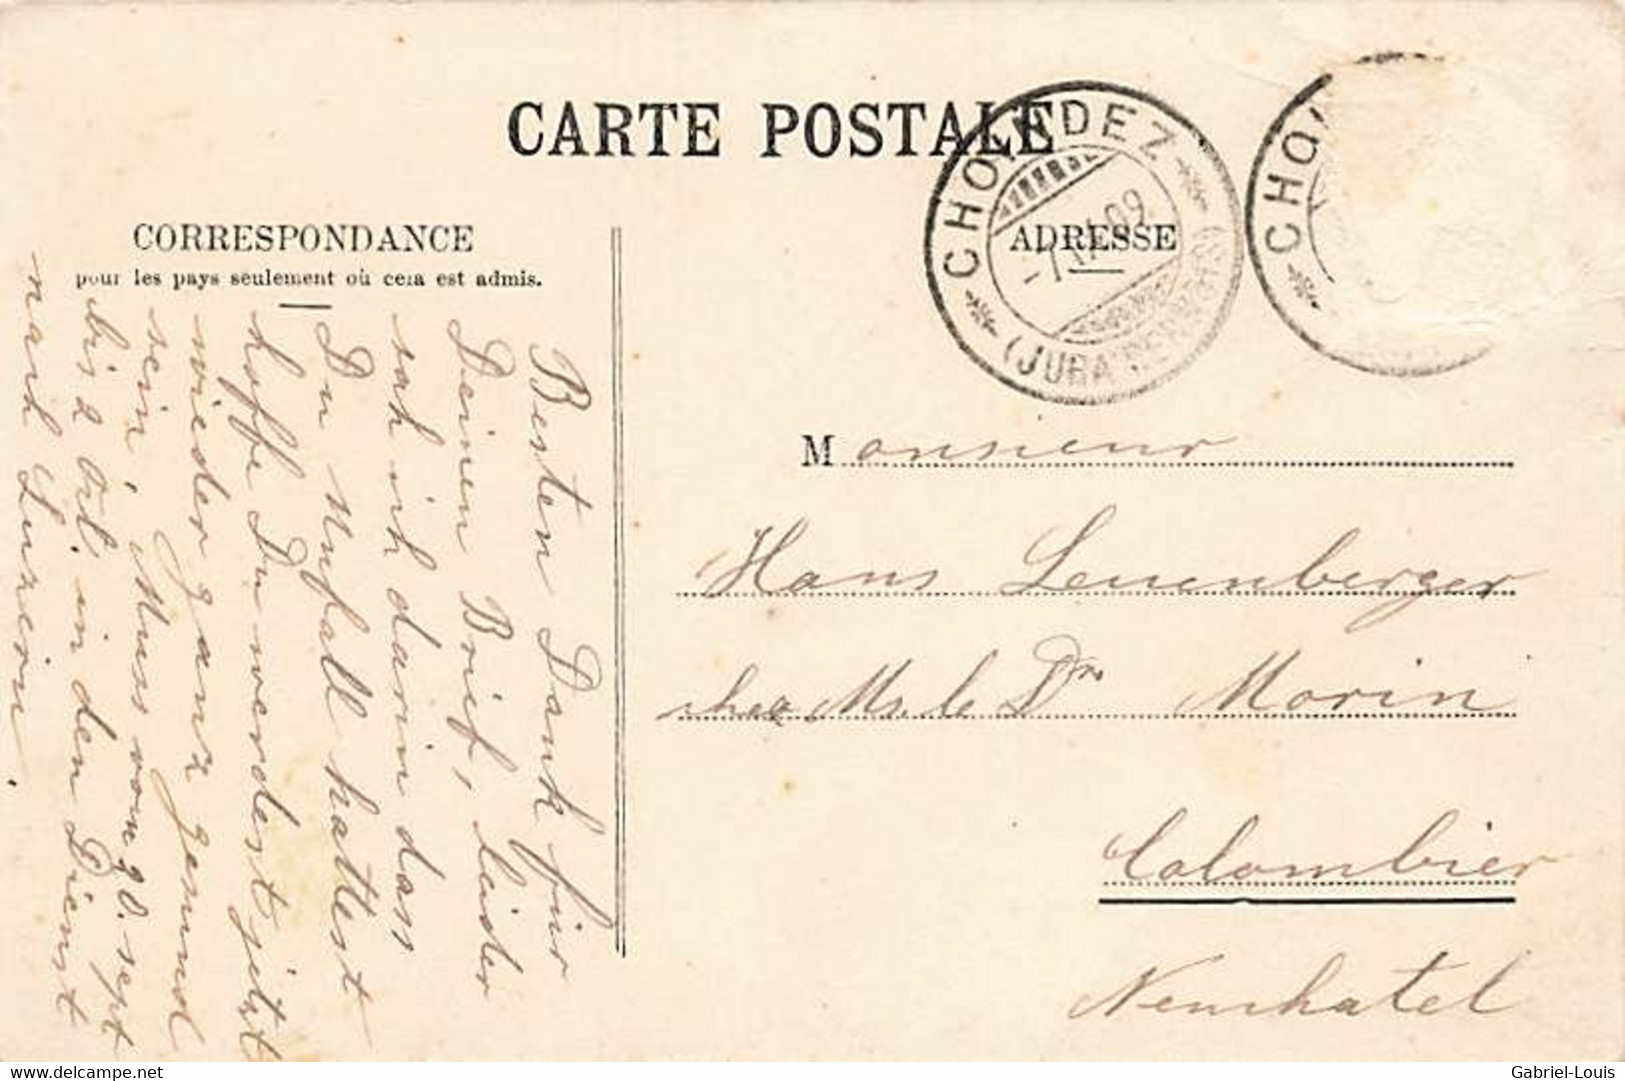 CARTE POSTALE
CORRESPONDANCE
pour les pays seulement où cela est admis.
ADRESSE
CHOINDEZ
(JURA BERNOIS)
09
CHO
Besten Dank für
Deinen Brief, leider
sah ich darin dass
Du Unfall hattest
hoffe Du werdest jetzt
wieder ganz gesund
sein, Muss vom 20. sept
bis 2 Oct. in den Dienst
nach Luzern.
Monsieur
Hans Leuenberger
chez Mr. le Dr Morin
Colombier
Neuchatel
delcampe.net
Gabriel-Louis